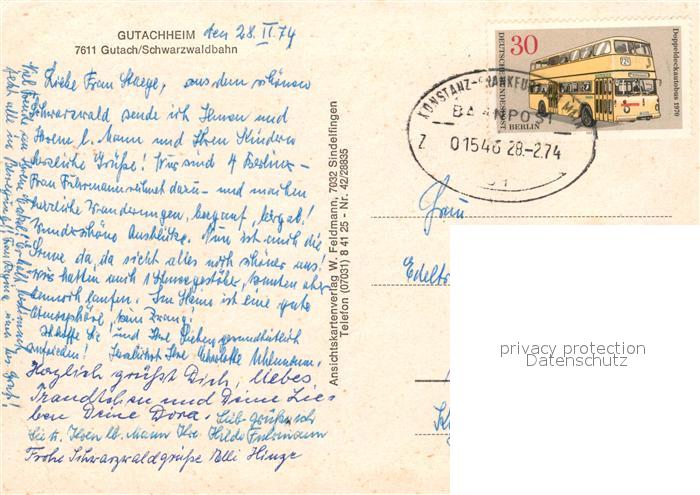 GUTACHHEIM den 28. II. 74
7611 Gutach/Schwarzwaldbahn
Liebe Frau Staege, aus dem schönen
Schwarzwald sende ich Ihnen und
Ihrem l. Mann und Ihren Kindern
herzliche Grüße! Wir sind 4 Berliner –
Frau Fuhrmann rechnet dazu – und machen
herrliche Wanderungen, bergauf, bergab!
Wunderschöne Ausblicke. Nun ist auch die
Sonne da, da sieht alles noch schöner aus!
Wir hatten auch 1 Schneegestöber, konnten aber
dennoch laufen. Im Heim ist eine gute
Atmosphäre, kein Zwang!
Ich hoffe Sie und Ihre Lieben gesundheitlich
zufrieden! Herzlichst Ihre Charlotte
Herzlich grüßt Dich, liebes
Traudtchen und Deine Lie-
ben Deine Dora. Lieb grüßen
Sie u. Ihren lb. Mann Ihre Hilde Fuhrmann
Frohe Schwarzwaldgrüße Elli Hinze
Viel Freude an Ihrem
Ansichtskartenverlag W. Feldmann, 7032 Sindelfingen
Telefon (07031) 8 41 25 - Nr. 42/28835
30
DEUTSCHE BUNDESPOST
BERLIN
Doppeldeckautobus 1970
KONSTANZ-FRANKFURT
BAHNPOST
Z 01546 28.-2.74
Frau
Edeltr
privacy protection
Datenschutz